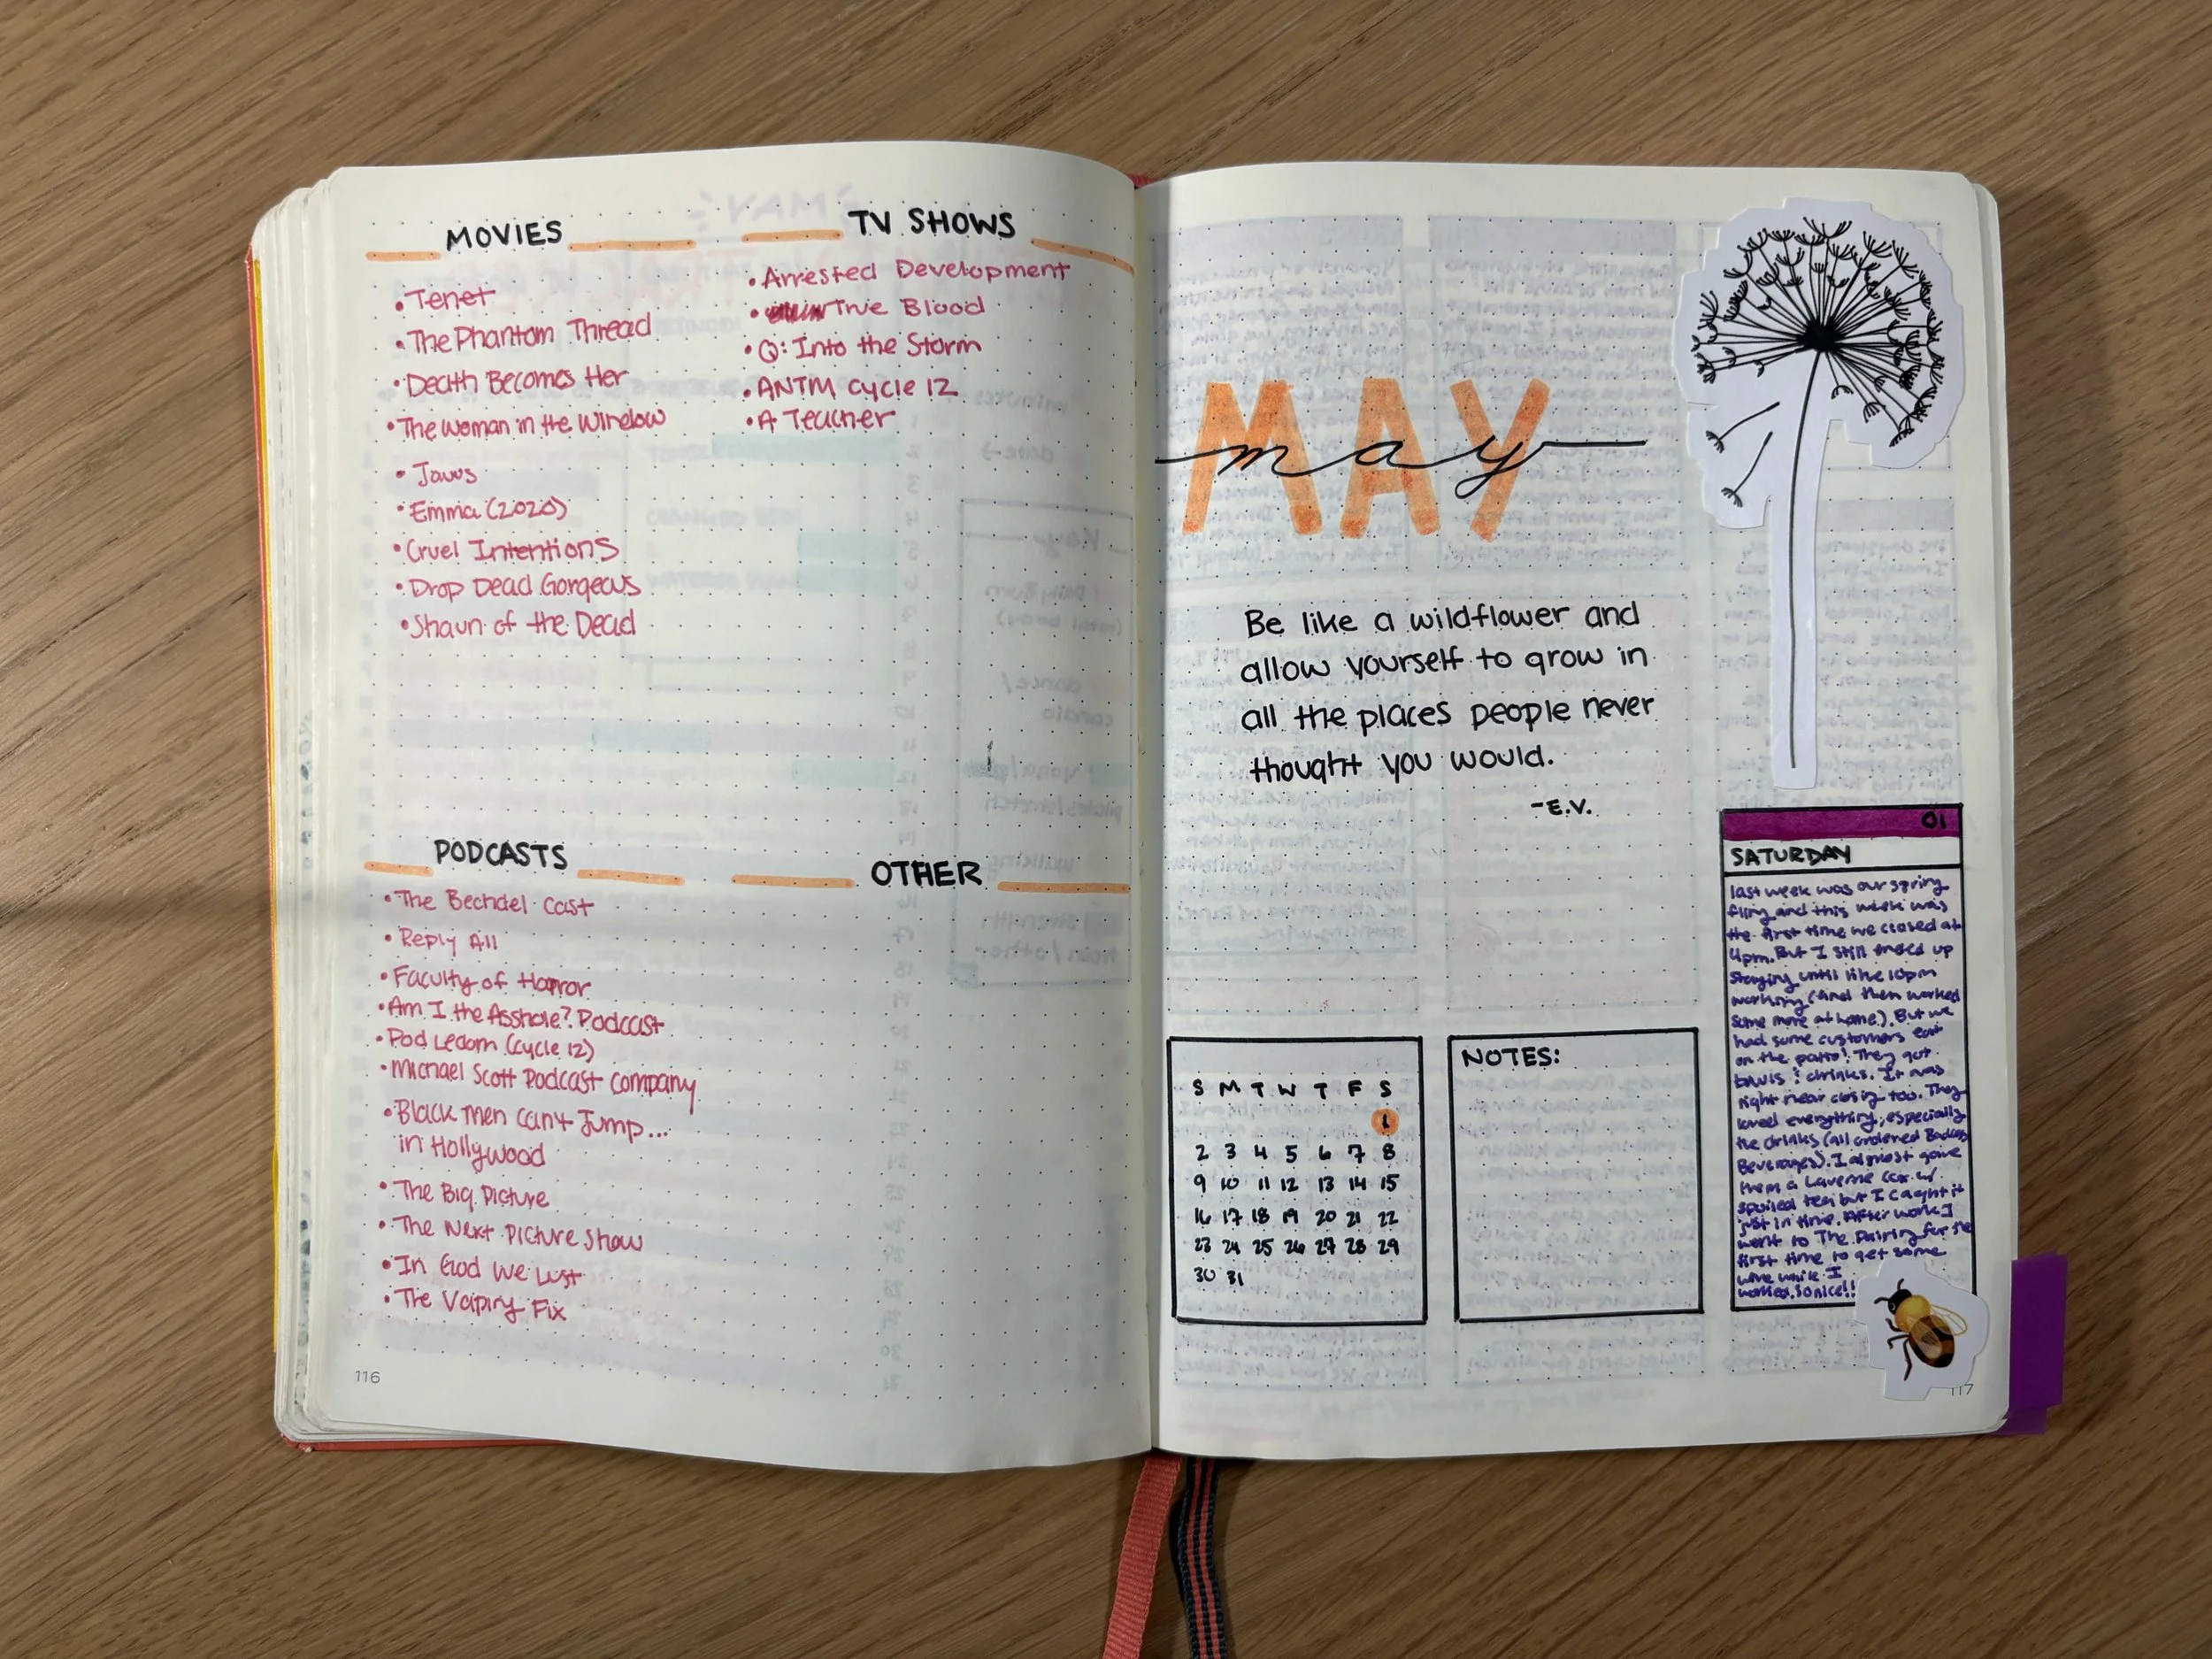 MOVIES
• Tenet
• The Phantom Thread
• Death Becomes Her
• The Woman in the Window
• Jaws
• Emma (2020)
• Cruel Intentions
• Drop Dead Gorgeous
• Shaun of the Dead
TV SHOWS
• Arrested Development
• True Blood
• Q: Into the Storm
• ANTM cycle 12
• A Teacher
PODCASTS
• The Bechdel Cast
• Reply All
• Faculty of Horror
• Am I the Asshole? Podcast
• Pod Ledom (cycle 12)
• Michael Scott Podcast Company
• Black Men Can't Jump...
in Hollywood
• The Big Picture
• The Next Picture Show
• In God We Lust
• The Vaping Fix
OTHER
116
MAY
may
Be like a wildflower and
allow yourself to grow in
all the places people never
thought you would.
-E.V.
S M T W T F S
1
2 3 4 5 6 7 8
9 10 11 12 13 14 15
16 17 18 19 20 21 22
23 24 25 26 27 28 29
30 31
NOTES:
01
SATURDAY
last week was our spring
fling and this week was
the first time we closed at
4pm. But I still ended up
staying until like 10pm
working (and then worked
some more at home). But we
had some customers eat
on the patio! They got
bowls & drinks. It was
right near closing too. They
loved everything, especially
the drinks (all ordered Badass
Beverages). I almost gave
them a Laverne Cox w/
spoiled tea but I caught it
just in time. After work I
went to The Pairing for the
first time to get some
wine while I
worked. So nice!!
117